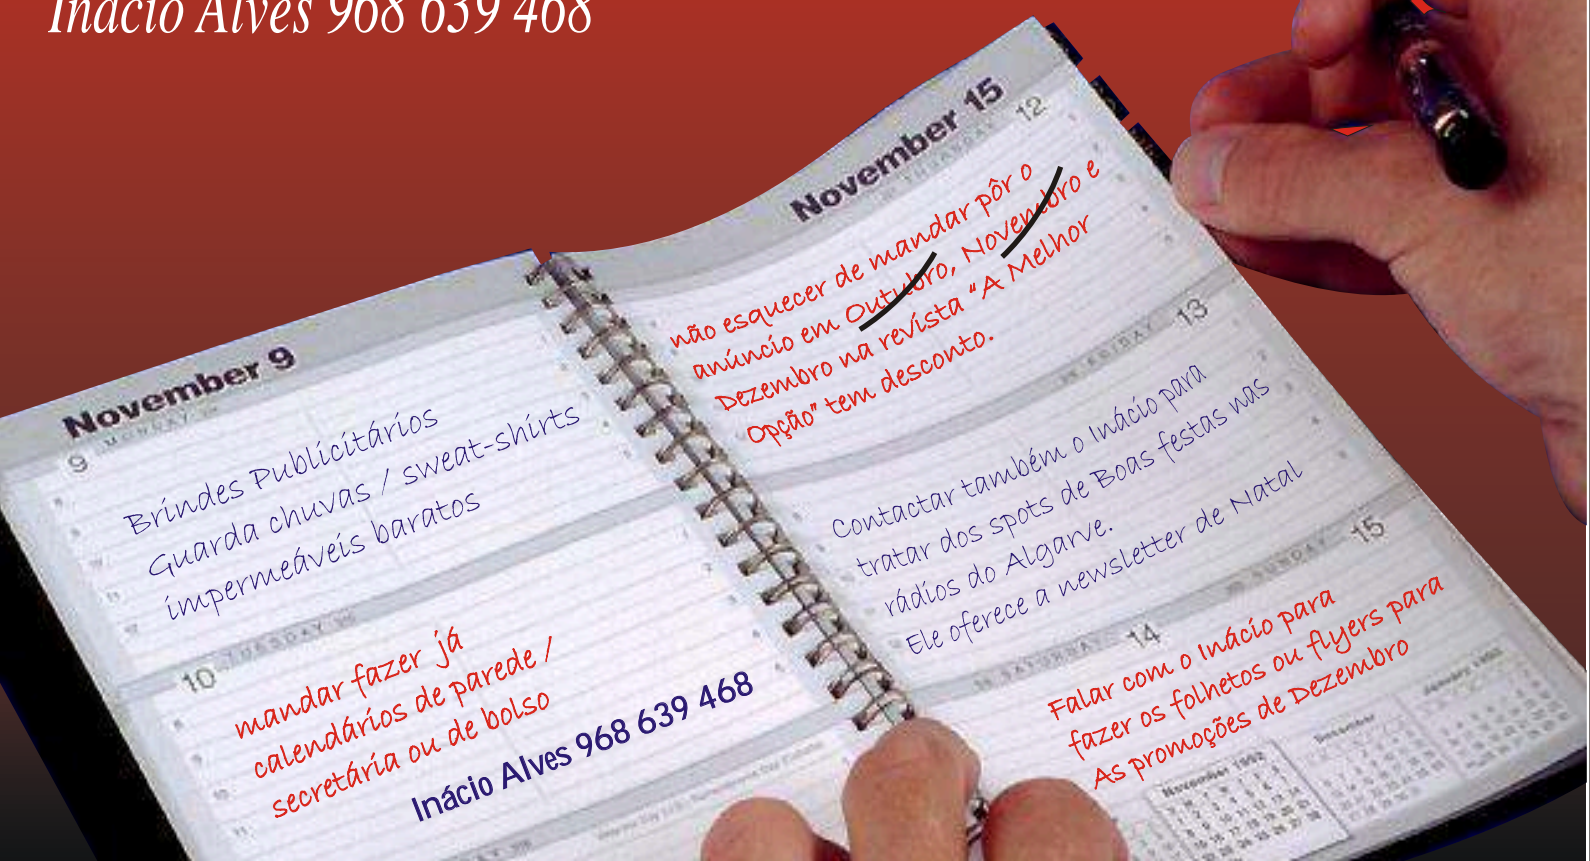 Inácio Alves 968 639 468
November 9
MONDAY
9
Brindes Publicitários
Guarda chuvas / sweat-shirts
impermeáveis baratos
10 TUESDAY
mandar fazer já
calendários de parede /
secretária ou de bolso
Inácio Alves 968 639 468
November 15
THURSDAY 12
não esquecer de mandar pôr o
anúncio em Outubro, Novembro e
Dezembro na revista "A Melhor
Opção" tem desconto.
FRIDAY 13
Contactar também o Inácio para
tratar dos spots de Boas festas nas
rádios do Algarve.
Ele oferece a newsletter de Natal
SATURDAY 14
SUNDAY 15
Falar com o Inácio para
fazer os folhetos ou flyers para
As promoções de Dezembro
November 1992
December
January 1993